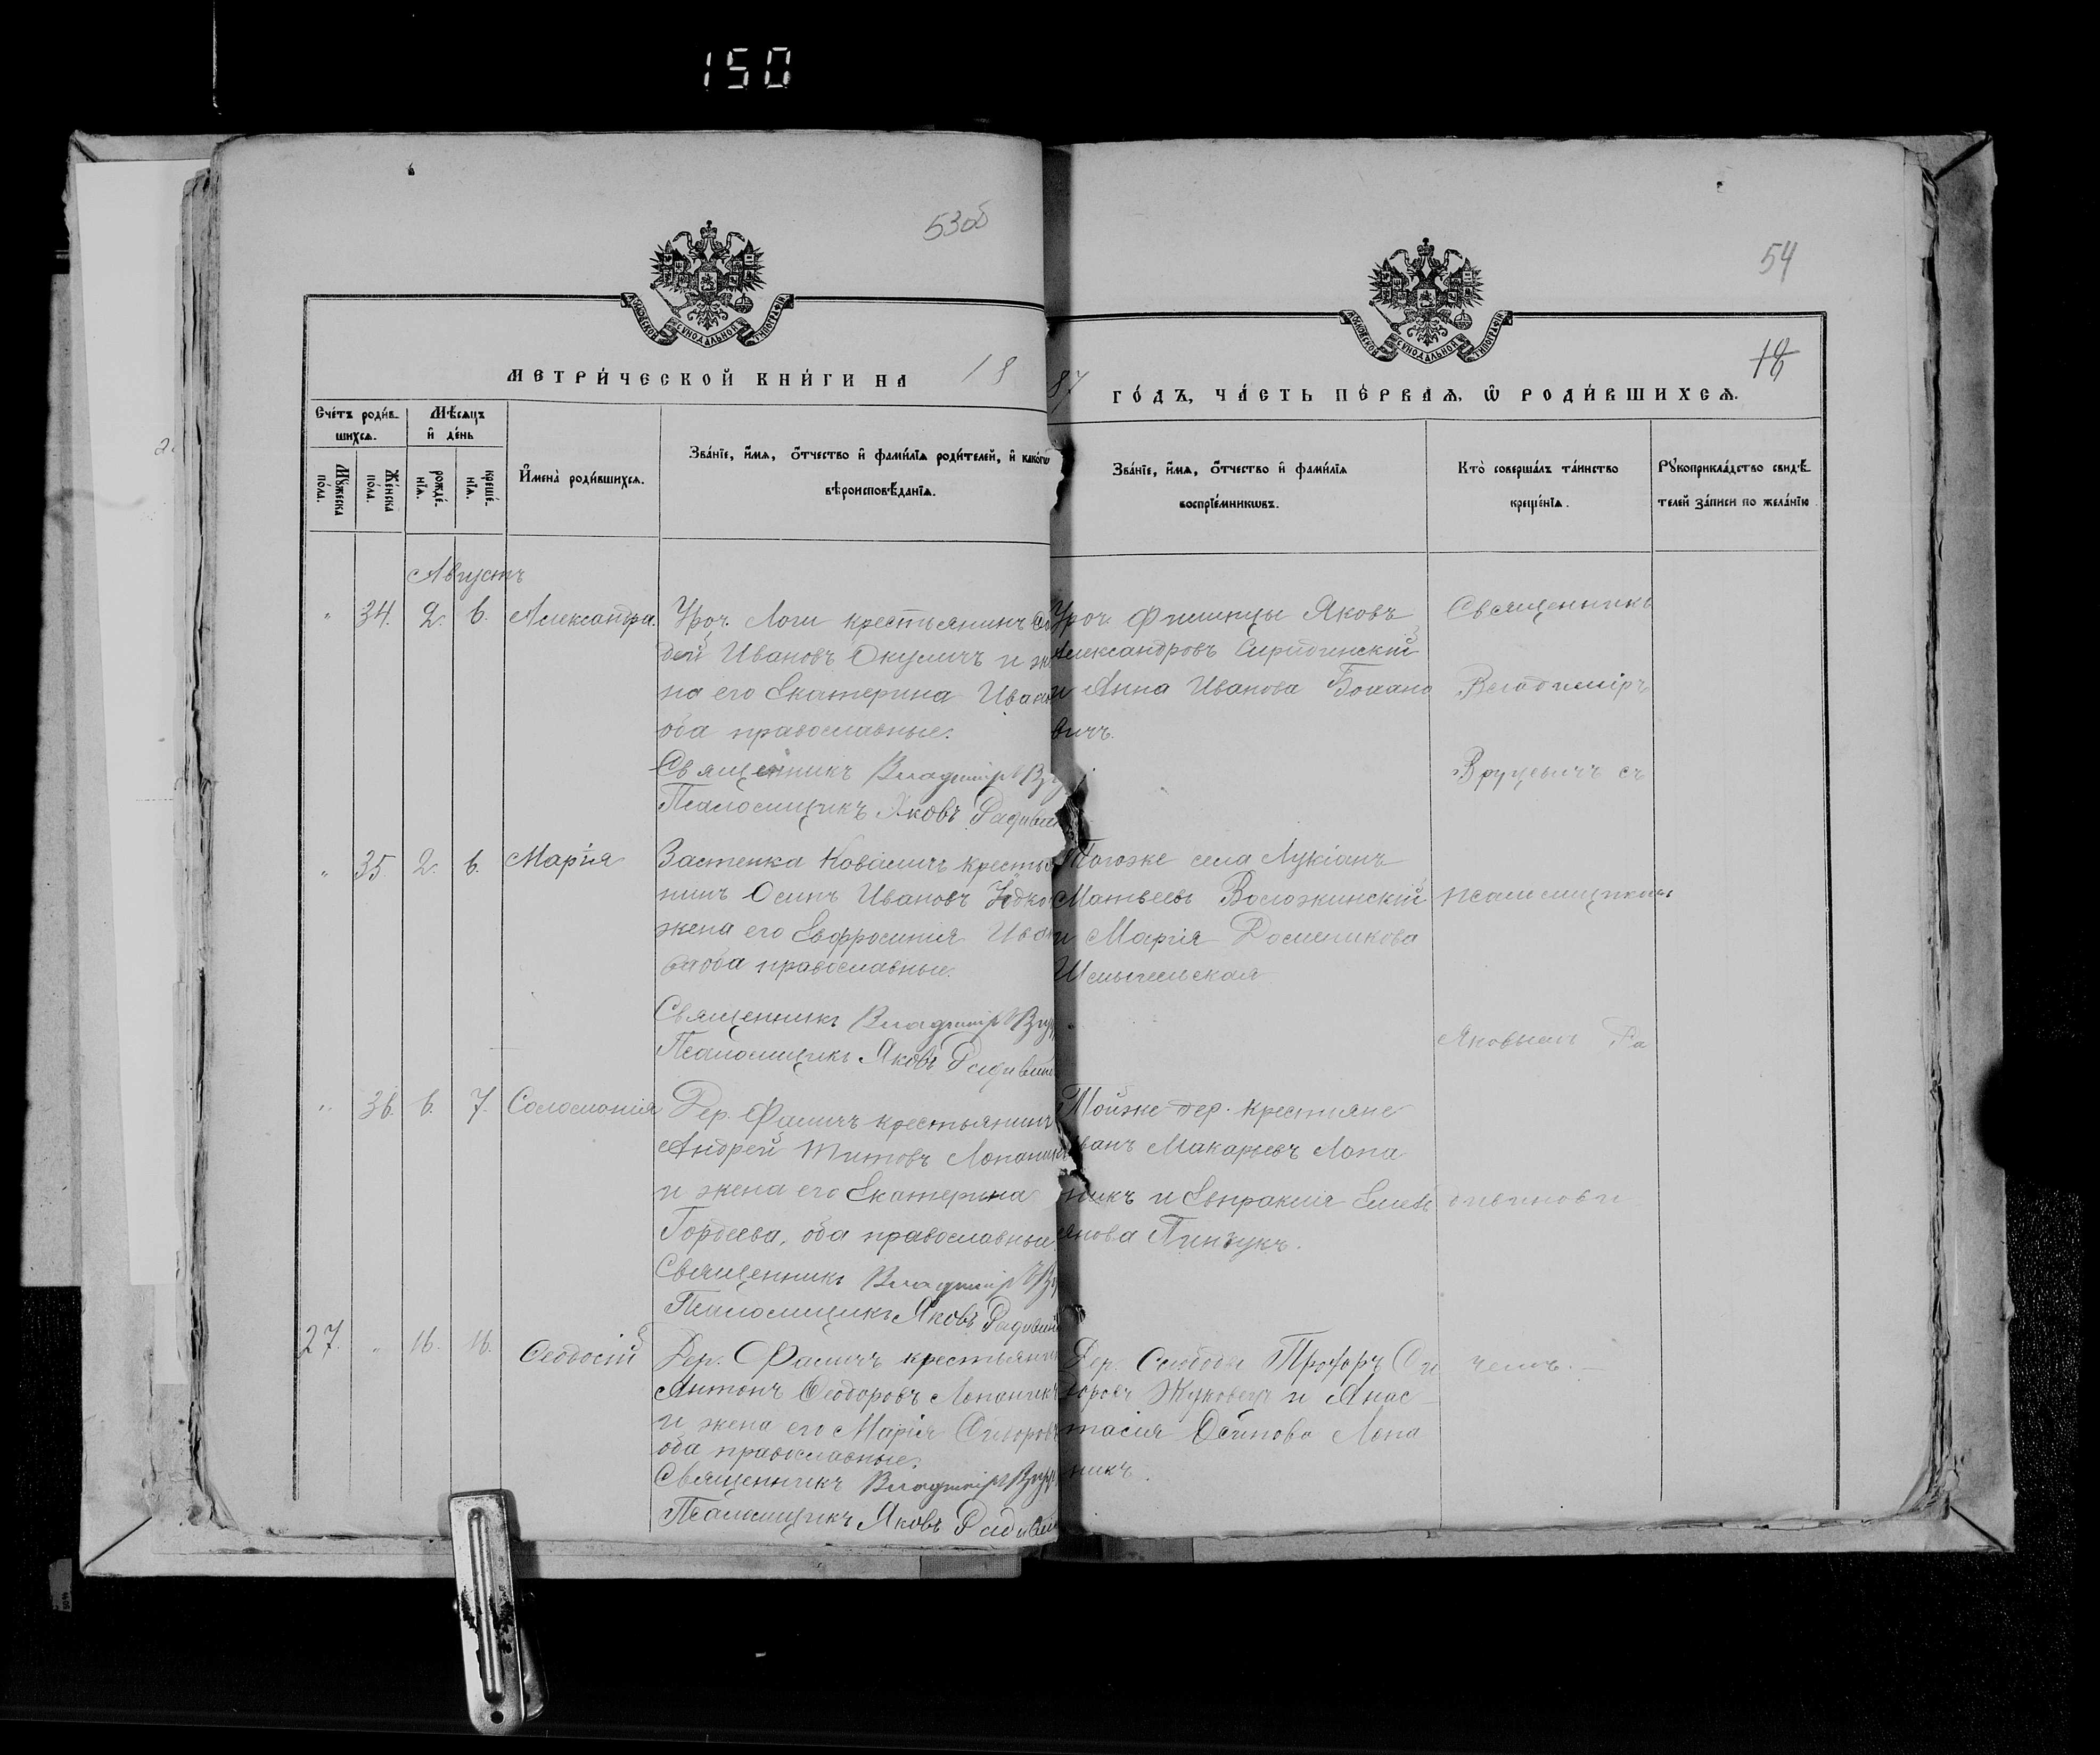 150
53об
54
МОСКОВСКОЙ СѴНОДАЛЬНОЙ ТИПОГРАФІИ
МОСКОВСКОЙ СѴНОДАЛЬНОЙ ТИПОГРАФІИ
18
МЕТРИ́ЧЕСКОЙ КНИ́ГИ НА 18
87 ГО́ДЪ, ЧА́СТЬ ПЕ́РВАѦ, Ѿ РОДИ́ВШИХСѦ.
Сче́тъ роди́в-
шихсѧ.
Мѣ́сяцъ
и҆ де́нь
Мꙋ́жеска
по́ла.
Же́нска
по́ла.
рожде́-
нїѧ.
креще́-
нїѧ.
И҆мена̀ роди́вшихсѧ.
Зва́нїе, и҆́мѧ, ѻ҆́тчество и҆ фами́лїѧ роди́телей, и҆ како́гѡ
вѣроисповѣ́данїѧ.
Зва́нїе, и҆́мѧ, ѻ҆́тчество и҆ фами́лїѧ
воспрїе́мникѡвъ.
Кто̀ соверша́лъ та́инство
креще́нїѧ.
Рꙋкоприкла́дство свидѣ́-
телей за́писи по жела́нїю
Августъ
" 34. 2. 6. Александра.
Уроч. Логи крестьянинъ
дей Ивановъ Окуличъ и же
на его Екатерина Иван
оба православные.
Священникъ Владиміръ Вру
Псаломщикъ Яковъ Радивин
Уроч. Яковъ
Александровъ
и Анна Иванова Бокано
вичъ.
Священникъ
Владиміръ
Вруцевичъ съ
" 35. 2. 6. Марія
Застенка Коваличъ крестья
нинъ Осипъ Ивановъ
жена его Евфросинія Ива
оба православные.
Священникъ Владиміръ Вру
Псаломщикъ Яковъ Радивин
Тогоже села Лукіанъ
Матвеевъ Воложинскій
и Марія
псаломщикомъ
Яковымъ Ра
" 36. 6. 7. Соломонія
Дер. Фаличъ крестьянинъ
Андрей Титовъ Лопаник
и жена его Екатерина
Гордеева, оба православные.
Священникъ Владиміръ Вр
Псаломщикъ Яковъ Радивин
Тойже дер. крестьяне
Иванъ Макарьевъ Лопа
никъ и Евпраксія Емель
янова Пинчукъ.
дивинови
27. " 16. 16. Ѳеодосій
Дер. Фаличъ крестьянин
Антонъ Ѳеодоровъ Лопаникъ
и жена его Марія Сидоров
оба православные.
Священникъ Владиміръ Вруц
Псаломщикъ Яковъ Радивин
Дер. Слободы Прохоръ Си
доровъ Жуковецъ и Анас
тасія Осипова Лопа
никъ.
чемъ.—